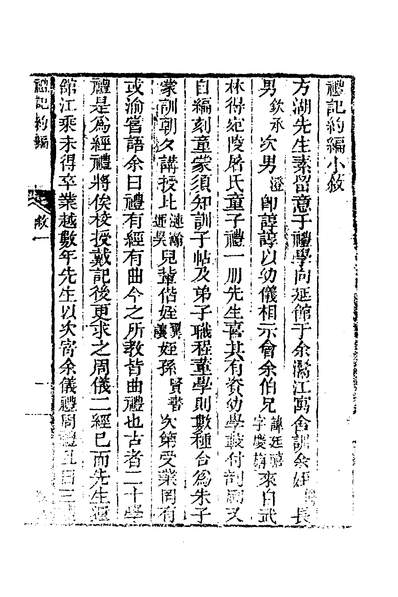 禮記約編小敘
方湖先生素留意于禮學向延館于余滿江寓舍訓余姪長
男欽承次男澄卽諄諄以幼儀相示會余伯兄諱廷字慶來自武
林得宛陵屠氏童子禮一冊先生喜其有資幼學付剞劂又
自編刻童蒙須知訓子帖及弟子職程董學則數種合為朱子
蒙訓朝夕講授比瀚昊兒輩偕姪翼讓姪孫賢書次第受業罔有
或渝嘗語余曰禮有經有曲今之所教皆曲禮也古者二十學
禮是為經禮將俟梭授戴記後更求之周儀二經已而先生還
館江乘未得卒業越數年先生以次寄余儀禮周禮三
禮記約編
敘
一